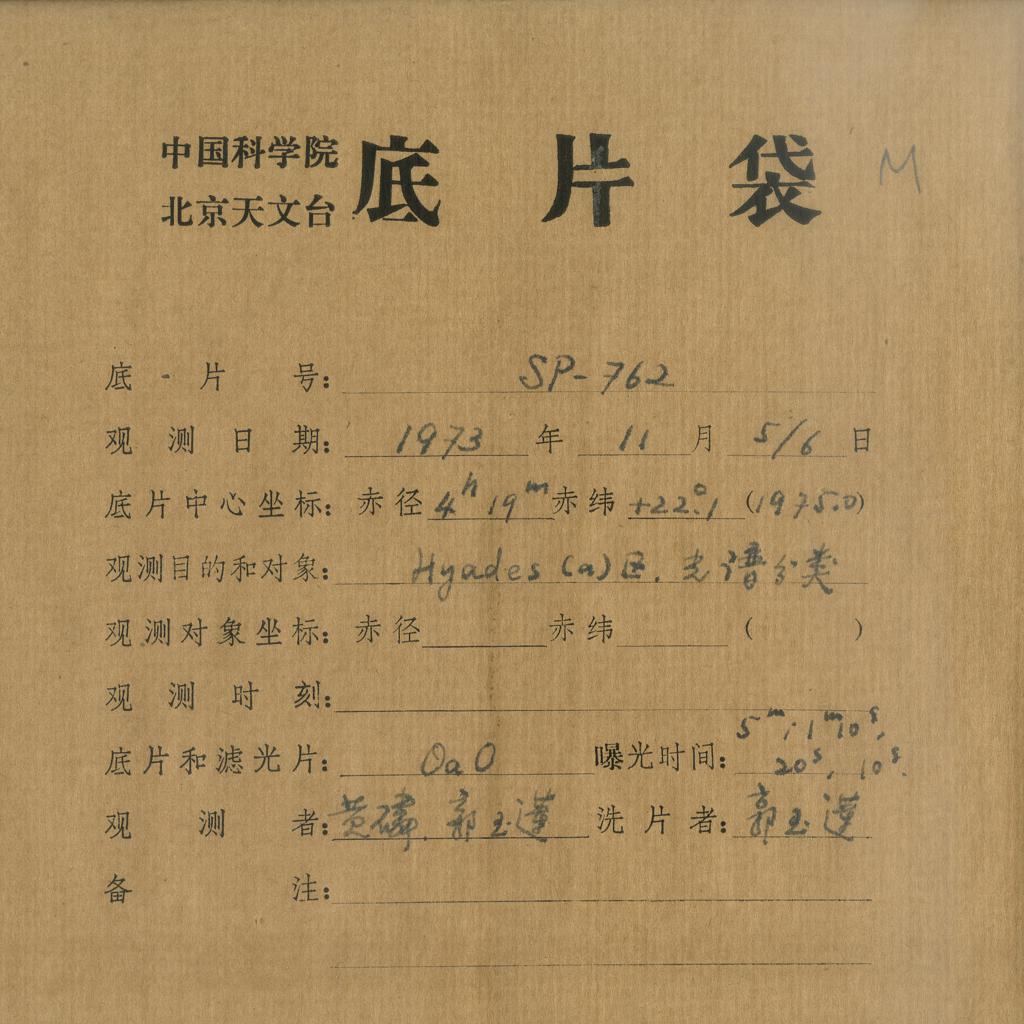 中国科学院
北京天文台
底片袋 M
底片号: SP-762
观测日期: 1973 年 11 月 5/6 日
底片中心坐标: 赤径 4ʰ 19ᵐ 赤纬 +22°.1 (1975.0)
观测目的和对象: Hyades (a) 区. 光谱分类
观测对象坐标: 赤径 赤纬 ( )
观测时刻:
底片和滤光片: OaO 曝光时间: 5ᵐ, 1ᵐ10ˢ, 20ˢ, 10ˢ.
观测者: 黄磷. 郭玉 洗片者: 郭玉
备注: